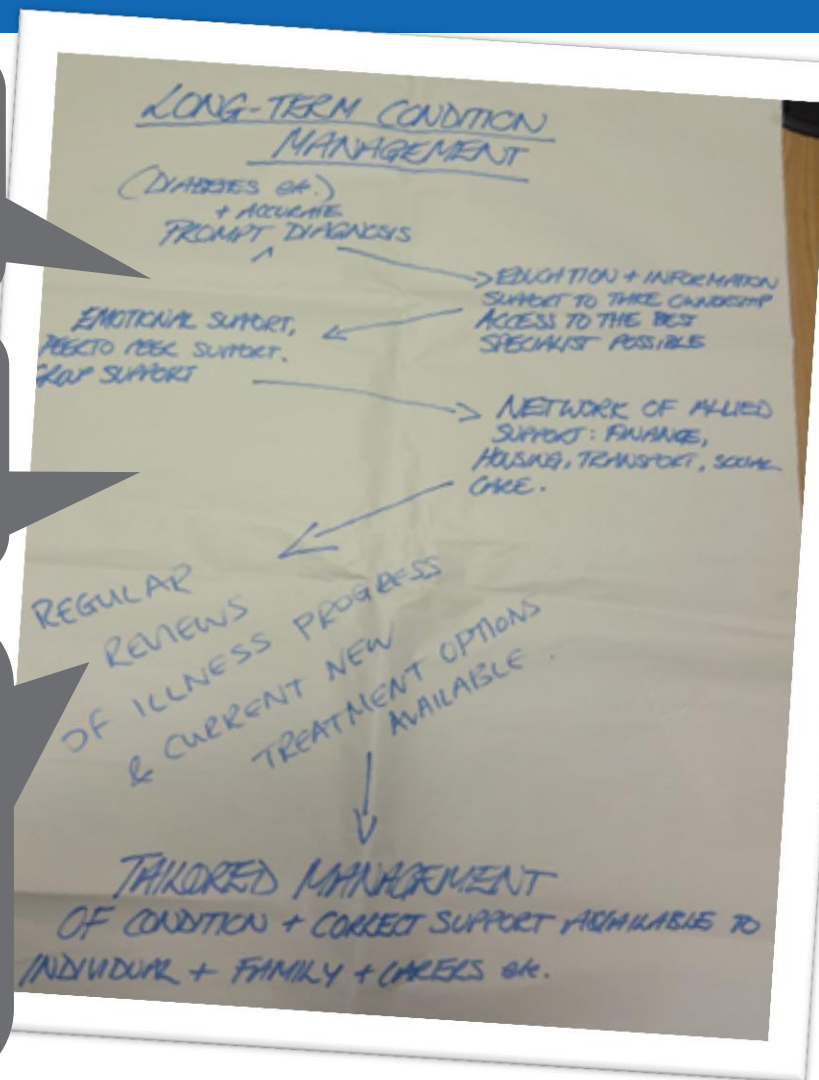 LONG-TERM CONDITION
MANAGEMENT
(DIABETES etc.)
+ ACCURATE
PROMPT DIAGNOSIS
EDUCATION + INFORMATION
SUPPORT TO TAKE OWNERSHIP
ACCESS TO THE BEST
SPECIALIST POSSIBLE
EMOTIONAL SUPPORT,
PEER TO PEER SUPPORT.
GROUP SUPPORT
NETWORK OF ALLIED
SUPPORT: FINANCE,
HOUSING, TRANSPORT, SOCIAL
CARE.
REGULAR
REVIEWS
OF ILLNESS PROGRESS
& CURRENT NEW
TREATMENT OPTIONS
AVAILABLE.
TAILORED MANAGEMENT
OF CONDITION + CORRECT SUPPORT AVAILABLE TO
INDIVIDUAL + FAMILY + CARERS etc.